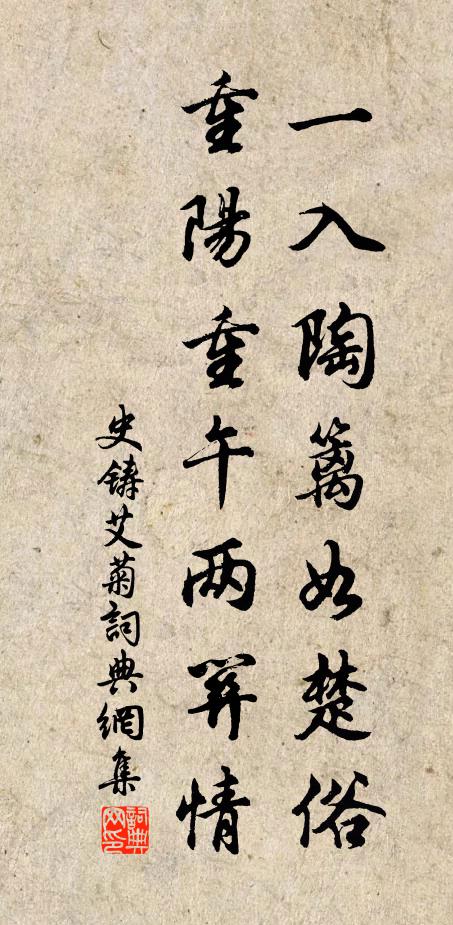 一入陶篱如楚俗
重陽重午两関情
史鑄艾菊詞典網集
詞典网印